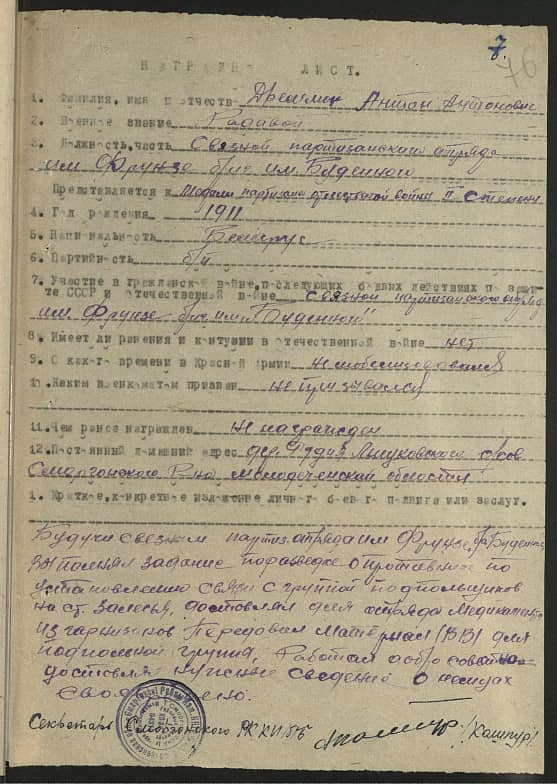 7
76
НАГРАДН ЛИСТ.
1. Фамилия, имя и отчество Антон Антонович
2. Военное звание Рядовой
3. Должность, часть Связной партизанского отряда
им Фрунзе бриг им. Буденного
Представляется к Медали партизана отечественной войны II степени
4. Год рождения 1911
5. Национальность Белорус
6. Партийность б/п
7. Участие в гражданской войне, последующих боевых действиях по защи-
те СССР и отечественной войне связной партизанского отряда
им. Фрунзе бриг. им. "Буденного"
8. Имеет ли ранения и контузии в отечественной войне нет
9. С какого времени в Красной Армии не мобилизовался
10. Каким военкоматом призван не призывался
11. Чем ранее награжден не награжден
12. Постоянный домашний адрес дер.
Сморгонского р-на Молодеченской области
1. Краткое, конкретное изложение личного боевого подвига или заслуг.
Будучи связным партиз. отряда им Фрунзе, бр. Буденного
выполнял задание по разведке о противнике по
установлению связи с группой подпольщиков
на ст. Залесье, доставлял для отряда медикаменты
из гарнизонов Передовал материал (ВВ) для
подпольной группы. Работал добросовестно
доставлял нужные сведения о немцах
своевременно.
Секретарь Сморгонского РК КП/б/Б /Кашпур/